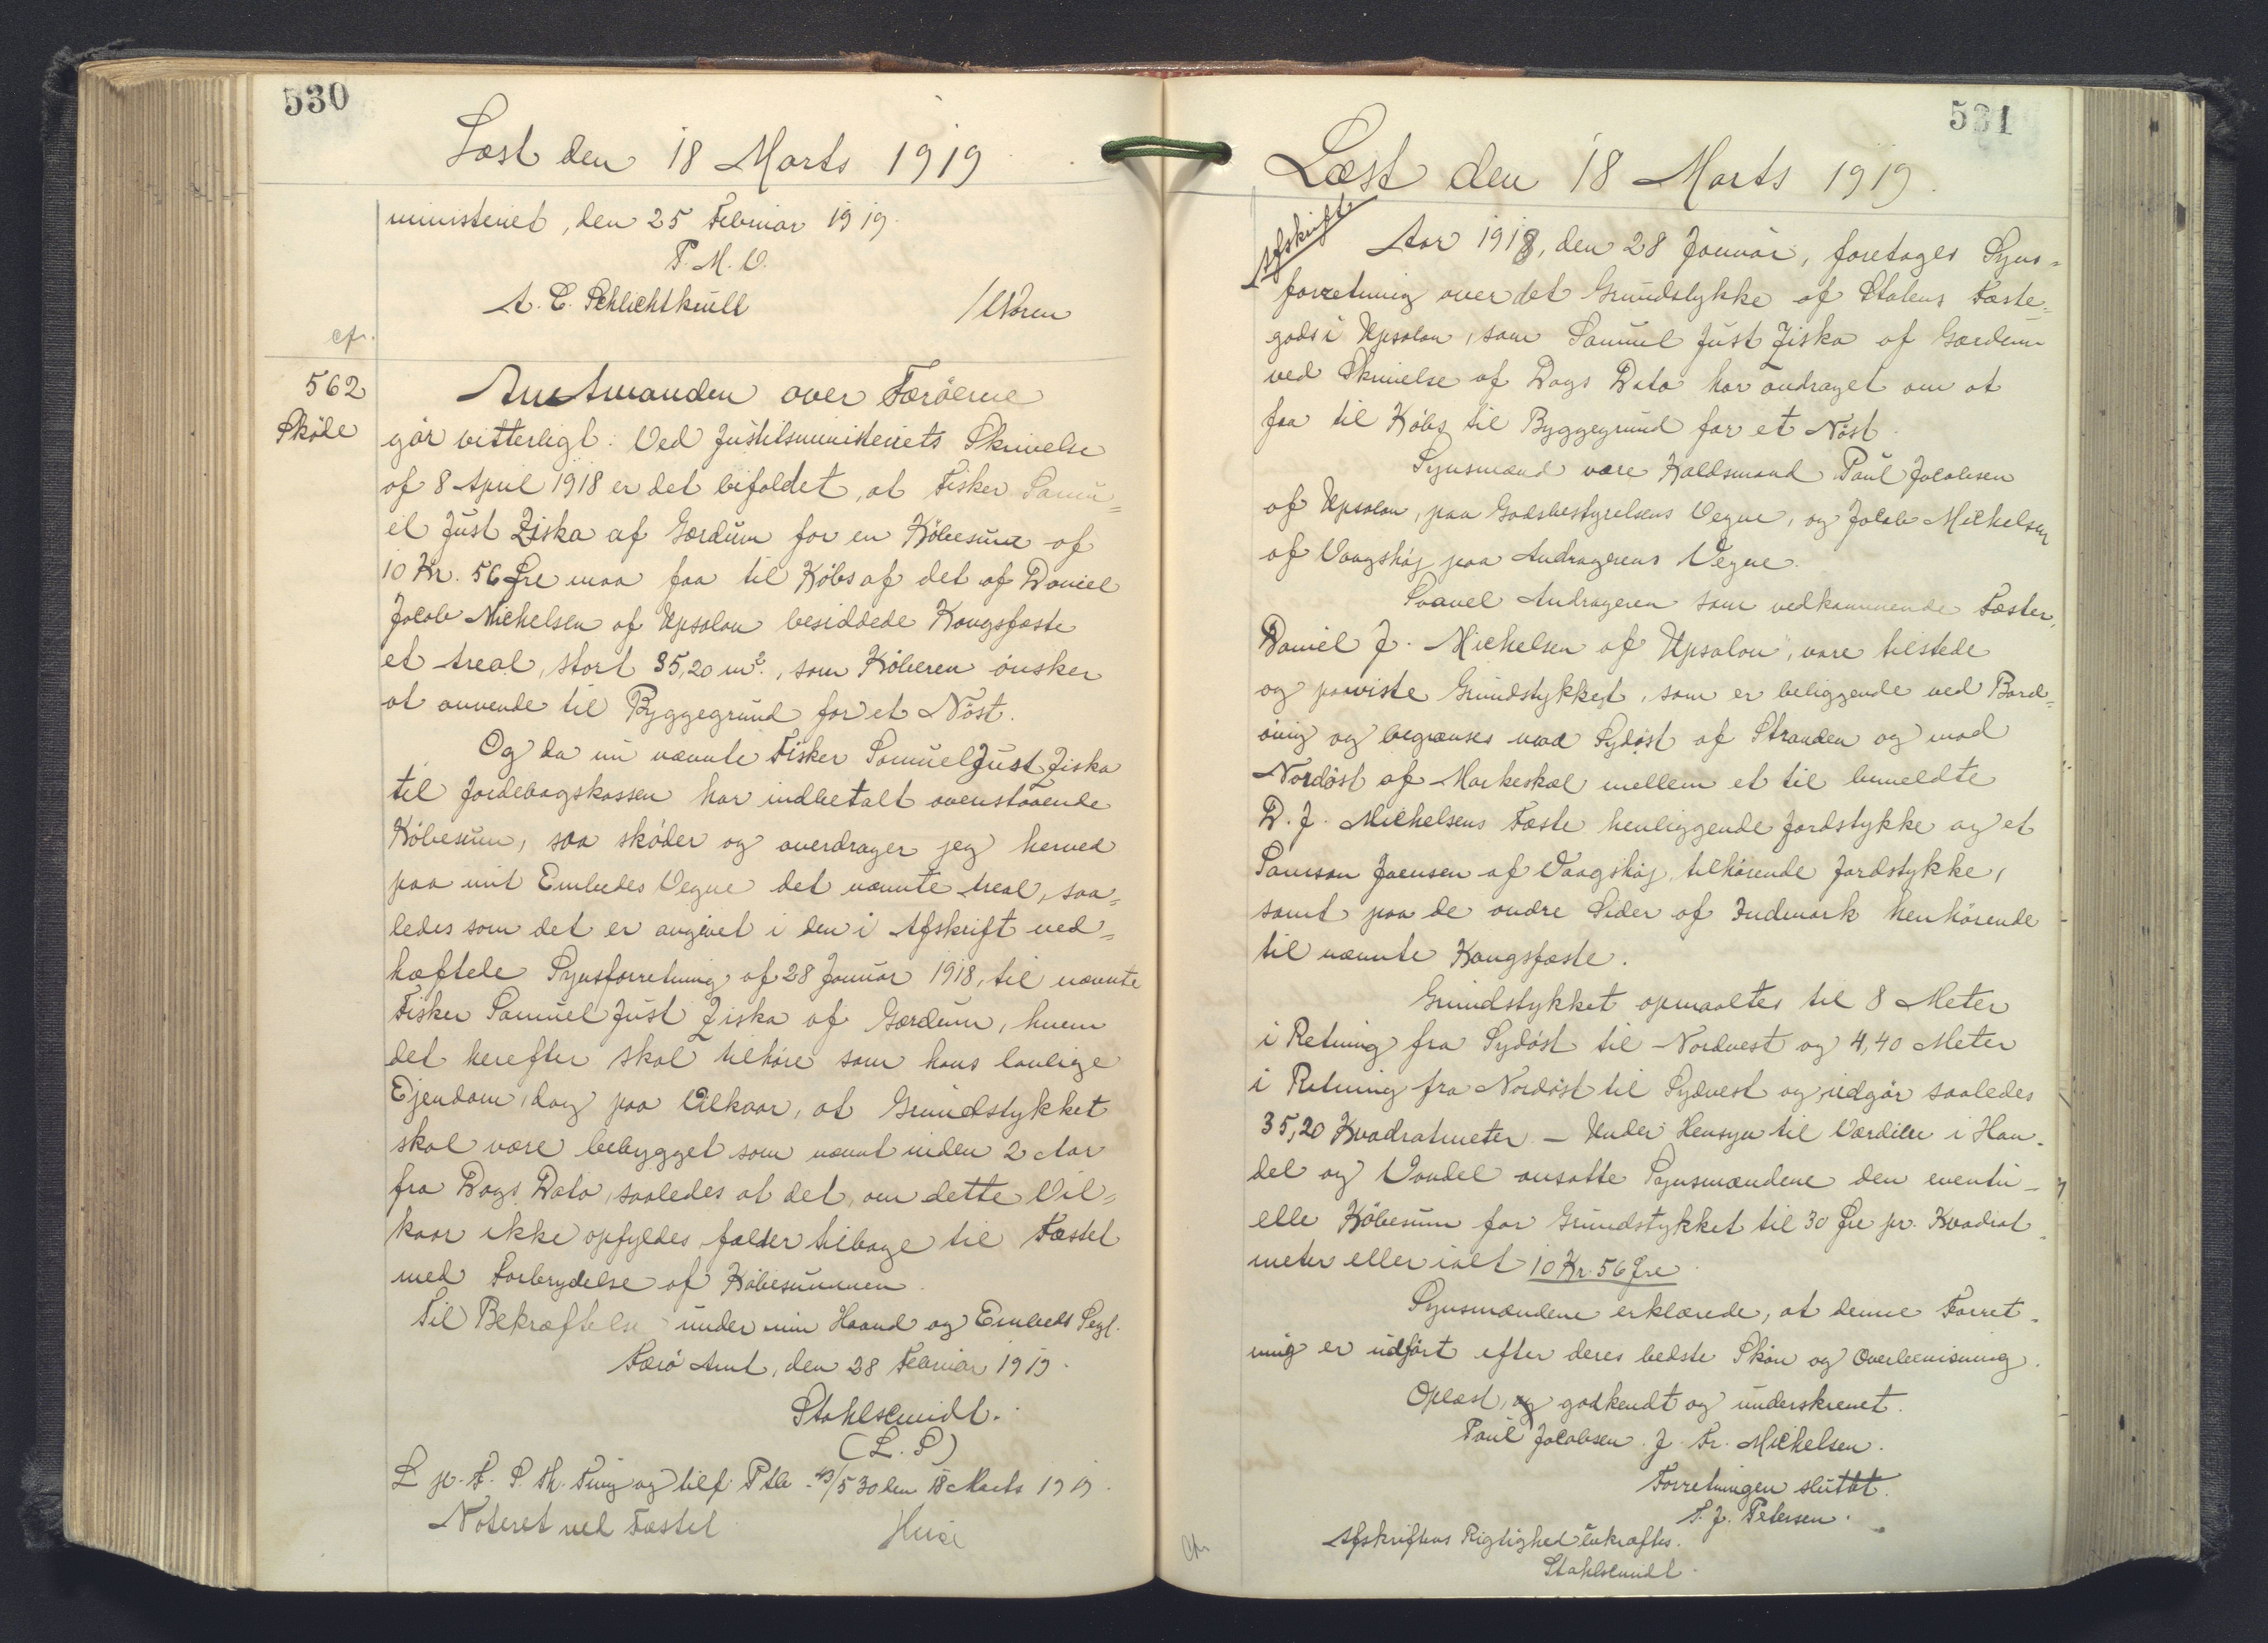 530
Læst den 18 Marts 1919
ministeriet, den 25 Februar 1919.
P. M. V.
A. C. Schlichtkrull
cfr.
562
Skøde
Amtmanden over Færöerne
gör vitterligt: Ved Justitsministeriets Skrivelse
af 8 April 1918 er det bifaldet, at Fisker Samu=
el Just Ziska af Gærdum for en Köbesum af
10 Kr. 56 Øre maa faa til Köbs af det af Daniel
Jacob Michelsen af Upsalon besiddede Kongsfæste
et Areal, stort 35,20 m²., som Köberen önsker
at anvende til Byggegrund for et Nöst.
Og da nu nævnte Fisker Samuel Just Ziska
til Jordebogskassen har indbetalt ovenstaaende
Köbesum, saa sköder og overdrager jeg herved
paa mit Embedes Vegne det nævnte Areal, saa=
ledes som det er angivet i den i Afskrift ved=
hæftede Synsforretning af 28 Januar 1918, til nævnte
Fisker Samuel Just Ziska af Gærdum, hvem
det herefter skal tilhöre som hans lovlige
Ejendom, dog paa Vilkaar, at Grundstykket
skal være bebygget som nævnt inden 2 Aar
fra Dags Dato, saaledes at det, om dette Vil=
kaar ikke opfyldes, falder tilbage til Fæstet
med Forbrydelse af Köbesummen.
Til Bekræftelse under min Haand og Embeds Segl.
Færö Amt, den 28 Februar 1919.
Stahlschmidt.
(L. S)
L. p. F. S. Th. Ting og tilf. Ptb. 43/530 den 18 Marts 1919.
Noteret ved Fæstet
531
Læst den 18 Marts 1919.
Afskrift
Aar 1918, den 28 Januar, foretages Syns=
forretning over det Grundstykke af Statens Fæste=
gods i Upsalon, som Samuel Just Ziska af Gærdum
ved Skrivelse af Dags Dato har andraget om at
faa til Köbs til Byggegrund for et Nöst.
Synsmænd vare Kaldsmand Paul Jacobsen
af Upsalon, paa Godsbestyrelsens Vegne, og Jacob Michelsen
af Vaagshöj paa Andragerens Vegne.
Saavel Andrageren som vedkommende Fæster,
Daniel J. Michelsen af Upsalon, vare tilstede
og paaviste Grundstykket, som er beliggende ved Bord=
öivig og begrænses mod Sydöst af Stranden og mod
Nordöst af Markeskæl mellem et til bemeldte
D. J. Michelsens Fæste henliggende Jordstykke og et
Samson Joensen af Vaagshöj tilhörende Jordstykke,
samt paa de andre Sider af Indmark henhörende
til nævnte Kongsfæste.
Grundstykket opmaaltes til 8 Meter
i Retning fra Sydöst til Nordvest og 4,40 Meter
i Retning fra Nordöst til Sydvest og udgör saaledes
35,20 Kvadratmeter. – Under Hensyn til Værdien i Han-
del og Vandel ansatte Synsmændene den eventu-
elle Köbesum for Grundstykket til 30 Øre pr. Kvadrat-
meter eller ialt 10 Kr. 56 Øre.
Synsmændene erklærede, at denne Forret-
ning er udfört efter deres bedste Skön og Overbevisning.
Oplæst, og godkendt og underskrevet.
Paul Jacobsen. J. Fr. Michelsen.
Forretningen sluttet.
S. J. Petersen.
Afskriftens Rigtighed bekræftes.
Stahlschmidt.
cfr